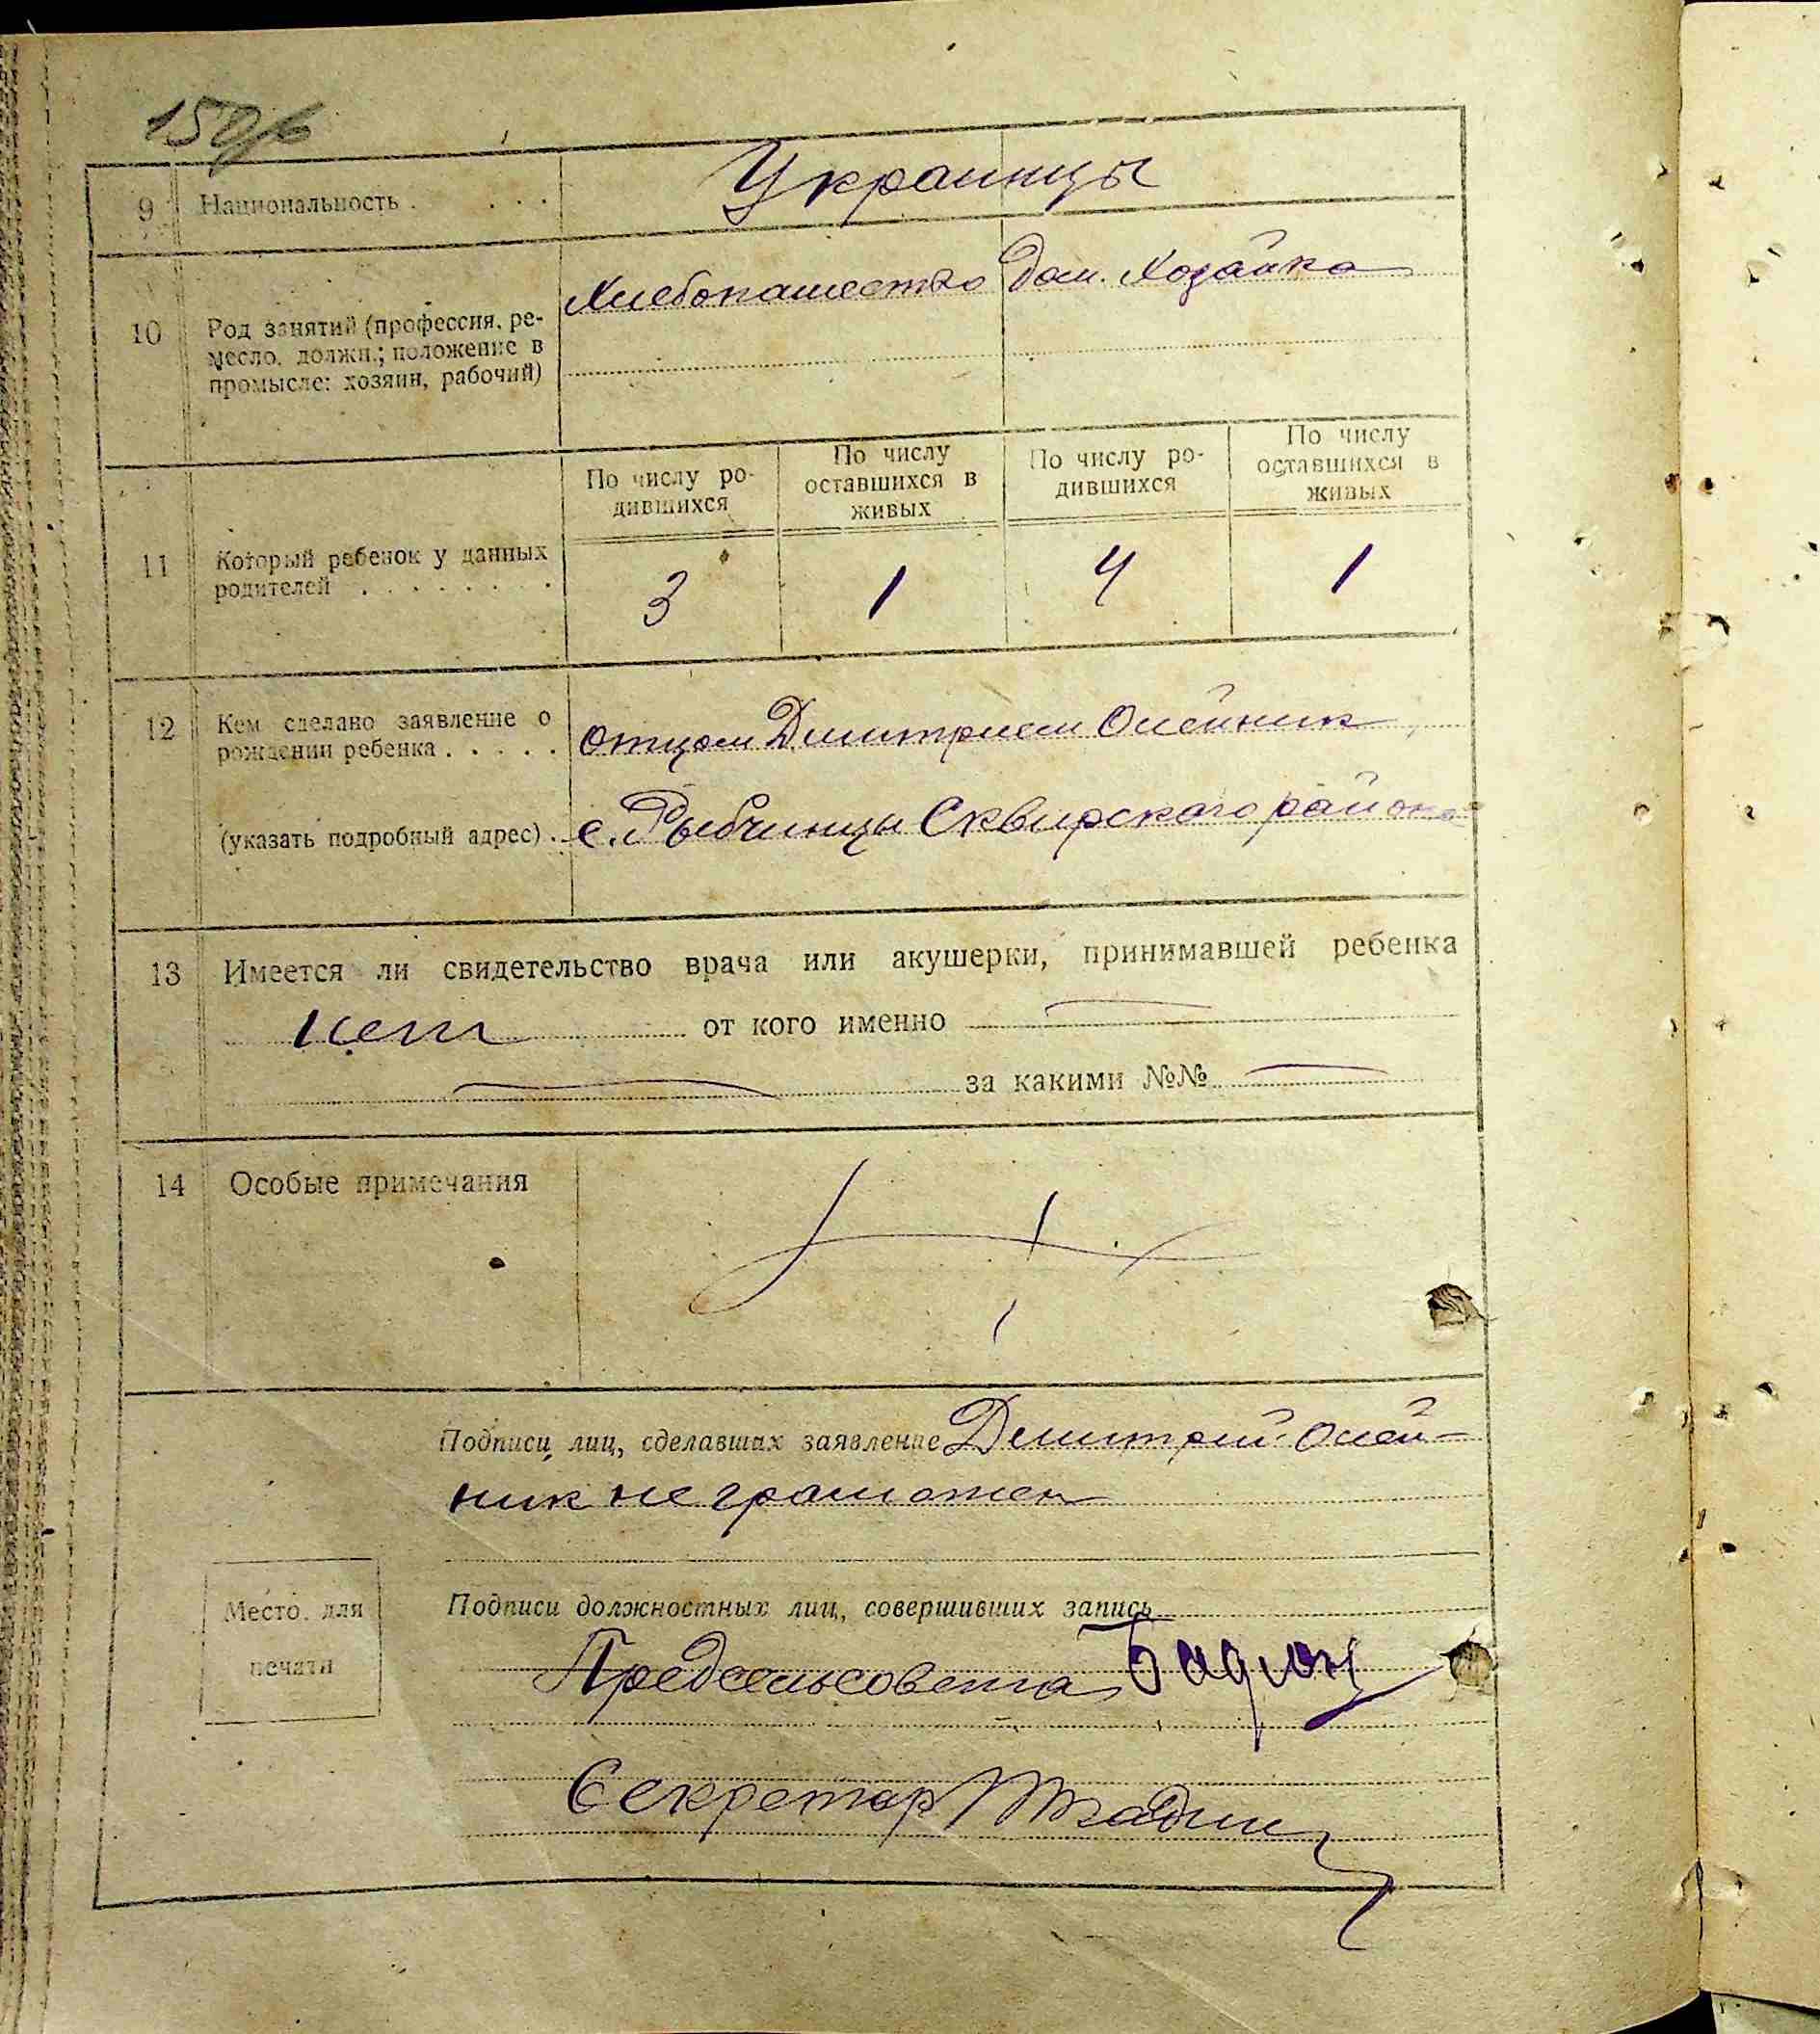 150об
9 Национальность . . . . Украинцы
10 Род занятий (профессия, ре-
месло, должн.; положение в
промысле: хозяин, рабочий)
Хлебопашество Дом. Хозайка
По числу ро-
дившихся
По числу
оставшихся в
живых
По числу ро-
дившихся
По числу
оставшихся в
живых
11 Который ребенок у данных
родителей . . . . . . . .
3 1 4 1
12 Кем сделано заявление о
рождении ребенка . . . . .
отцом Дмитрием Олейник
(указать подробный адрес) . с. Рыбчинцы Сквирского района
13 Имеется ли свидетельство врача или акушерки, принимавшей ребенка
нет от кого именно —
— за какими №№ —
14 Особые примечания
Подписи лиц, сделавших заявление Дмитрий Олей-
ник не грамотен
Место для
печати
Подписи должностных лиц, совершивших запись
Предсельсовета
Секретар